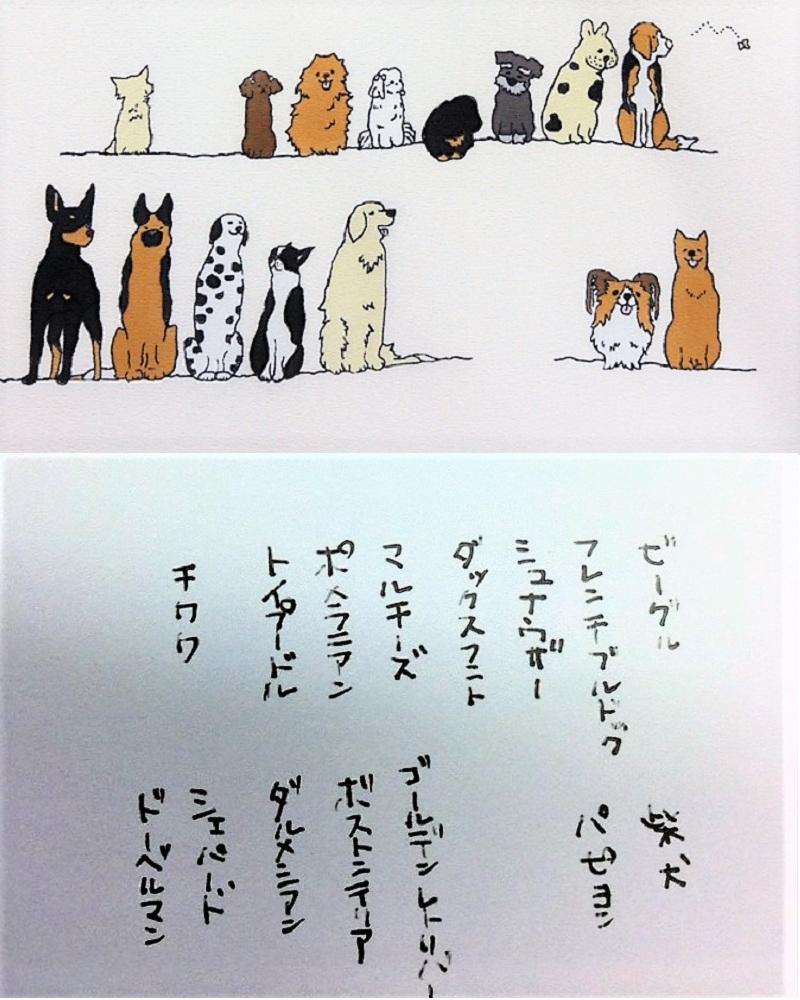 ビーグル
フレンチブルドッグ
シュナウザー
ダックスフント
マルチーズ
ポメラニアン
トイプードル
チワワ
柴犬
パピヨン
ゴールデンレトリバー
ボストンテリア
ダルメシアン
シェパード
ドーベルマン